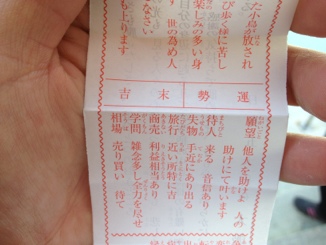 た小鳥が放され
び歩く様に苦し
楽しみの多い身
す 世の為め人
なさい
も上ります
運勢 末吉
願望 他人を助けよ 人の
助けにて叶います
待人 来る 音信あり
失物 手近にあり出る
旅行 近い所特に吉
商売 利益相当あり
学問 雑念多し全力を尽せ
相場 売り買い 待て